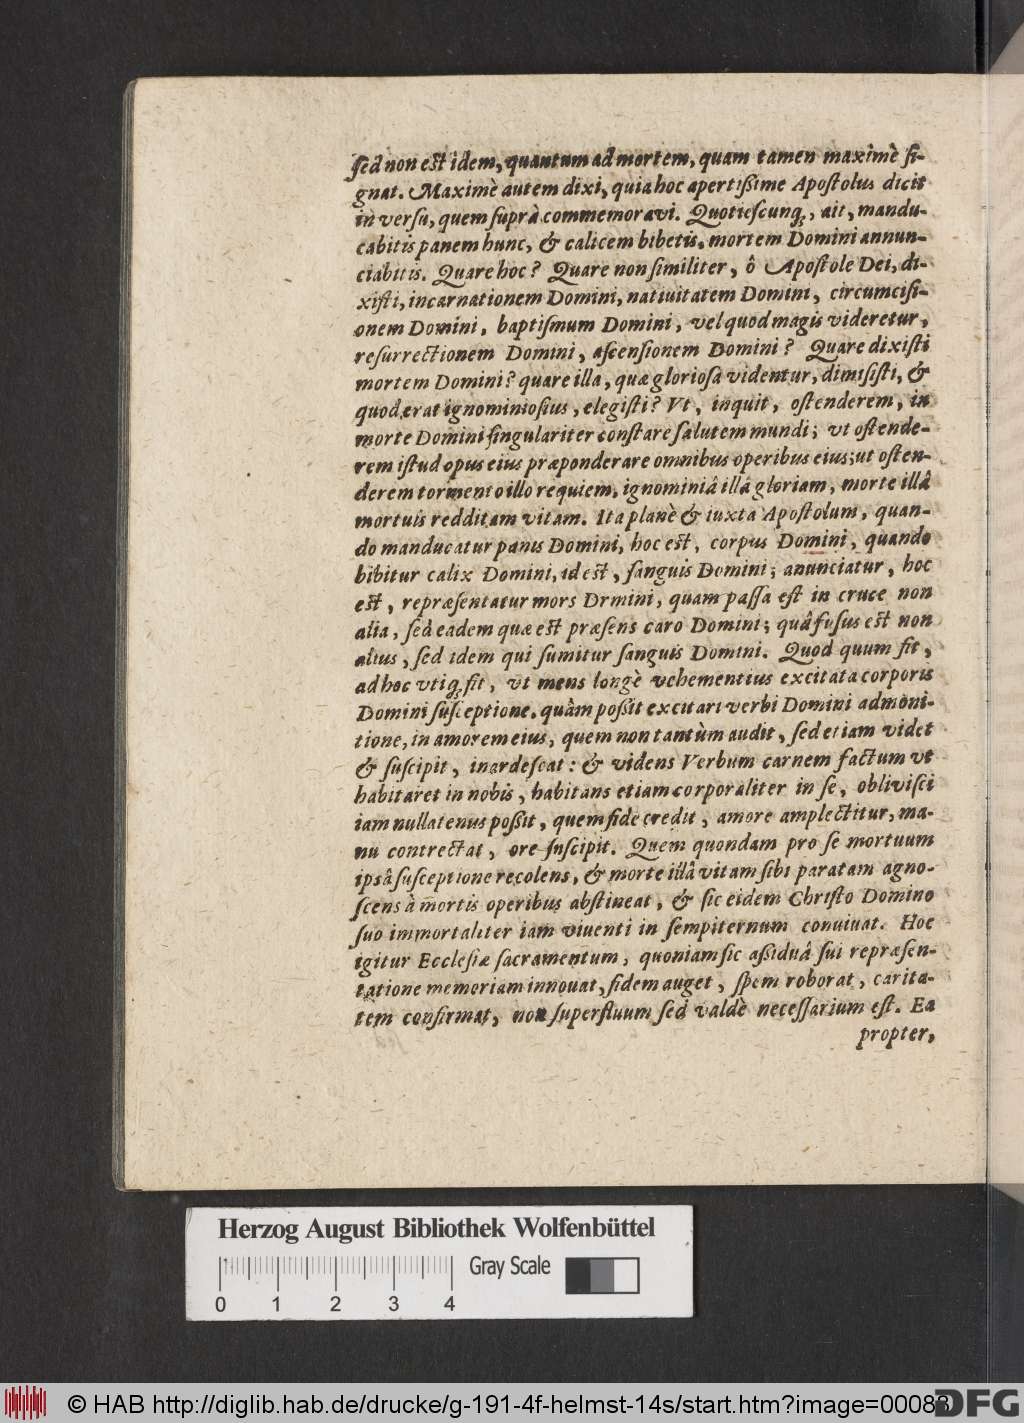 ſed non eſt idem, quantum ad mortem, quam tamen maximè ſi-
gnat. Maximè autem dixi, quia hoc apertißime Apoſtolus dicit
in verſu, quem ſuprà commemoravi. Quotieſcunq́;, ait, mandu-
cabitis panem hunc, & calicem bibetis, mortem Domini annun-
ciabitis. Quare hoc? Quare non ſimiliter, ô Apoſtole Dei, di-
xiſti, incarnationem Domini, natiuitatem Domini, circumciſi-
onem Domini, baptiſmum Domini, vel quod magis videretur,
reſurrectionem Domini, aſcenſionem Domini? Quare dixiſti
mortem Domini? quare illa, quæ glorioſa videntur, dimiſiſti, &
quod erat ignominioſius, elegiſti? Vt, inquit, oſtenderem, in
morte Domini ſingulariter conſtare ſalutem mundi; vt oſtende-
rem iſtud opus eius præponderare omnibus operibus eius; ut oſten-
derem tormento illo requiem, ignominiâ illâ gloriam, morte illâ
mortuis redditam vitam. Ita planè & iuxta Apoſtolum, quan-
do manducatur panis Domini, hoc eſt, corpus Domini, quando
bibitur calix Domini, id eſt, ſanguis Domini; anunciatur, hoc
eſt, repræſentatur mors Drmini, quam paſſa eſt in cruce non
alia, ſed eadem quæ eſt præſens caro Domini; quâ fuſus eſt non
alius, ſed idem qui ſumitur ſanguis Domini. Quod quum fit,
ad hoc vtiq́; fit, vt mens longè vehementius excitata corporis
Domini ſuſceptione, quàm poßit excitari verbi Domini admoni-
tione, in amorem eius, quem non tantùm audit, ſed etiam videt
& ſuſcipit, inardeſcat: & videns Verbum carnem factum vt
habitaret in nobis, habitans etiam corporaliter in ſe, obliviſci
iam nullatenus poßit, quem fide credit, amore amplectitur, ma-
nu contrectat, ore ſuſcipit. Quem quondam pro ſe mortuum
ipsâ ſuſceptione recolens, & morte illâ vitam ſibi paratam agno-
ſcens à mortis operibus abſtineat, & ſic eidem Chriſto Domino
ſuo immortaliter iam viventi in ſempiternum convivat. Hoc
igitur Eccleſiæ ſacramentum, quoniam ſic aßiduâ ſui repræſen-
tatione memoriam innovat, fidem auget, ſpem roborat, carita-
tem confirmat, non ſuperfluum ſed valdè neceſſarium eſt. Ea
propter,
Herzog August Bibliothek Wolfenbüttel
Gray Scale
0 1 2 3 4
© HAB http://diglib.hab.de/drucke/g-191-4f-helmst-14s/start.htm?image=00083
DFG